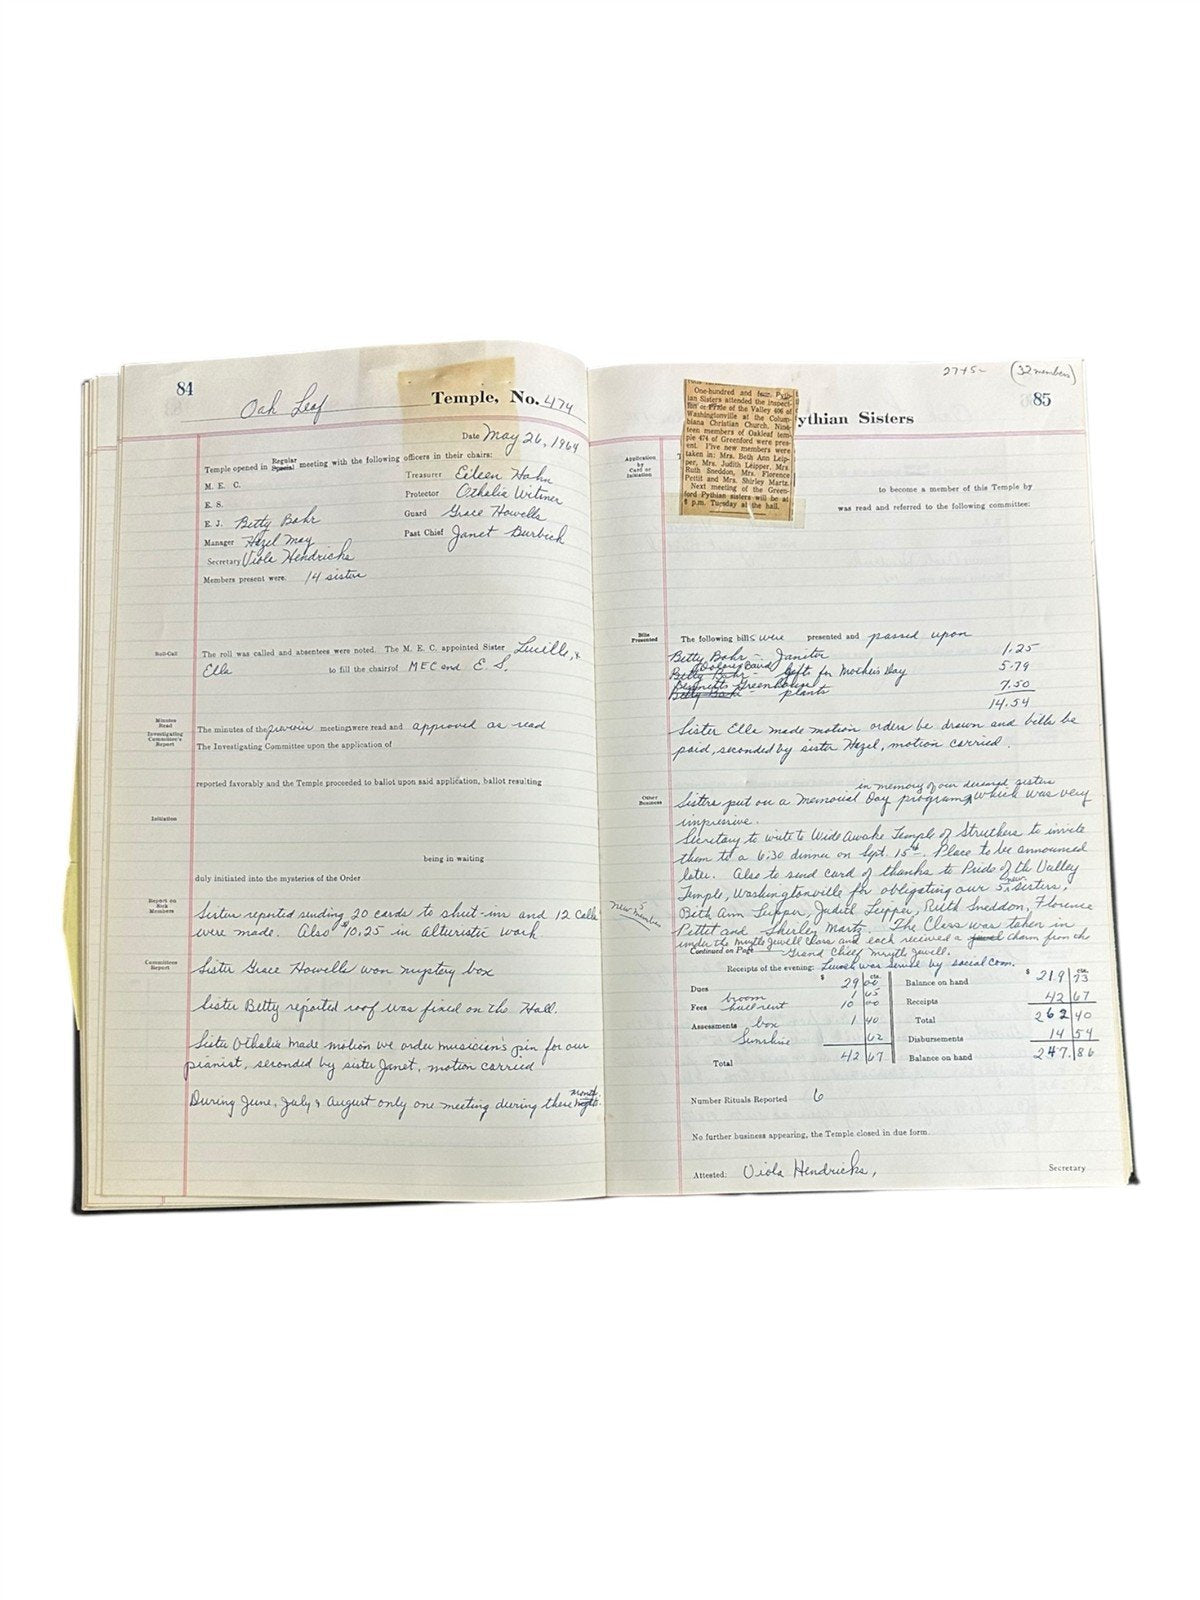 84
Oak Leaf Temple, No. 474
Date May 26, 1964
Temple opened in Regular Special meeting with the following officers in their chairs:
M. E. C.
E. S.
E. J. Betty Bahr
Manager Hazel May
Secretary Viola Hendricks
Members present were. 14 sisters
Treasurer Eileen Hahn
Protector Othalia Witmer
Guard Grace Howells
Past Chief Janet Burbick
Roll-Call
The roll was called and absentees were noted. The M. E. C. appointed Sister Lucille, &
Ella to fill the chairs of MEC and E. S.
Minutes Read
The minutes of the previous meeting were read and approved as read
Investigating Committee's Report
The Investigating Committee upon the application of
reported favorably and the Temple proceeded to ballot upon said application, ballot resulting
Initiation
being in waiting
duly initiated into the mysteries of the Order
Report on Sick Members
Sisters reported sending 20 cards to shut-ins and 12 calls
were made. Also $10.25 in alturistic work
Committees Report
Sister Grace Howells won mystery box
Sister Betty reported roof was fixed on the Hall.
Sister Othalia made motion we order musician's pin for our
pianist, seconded by sister Janet, motion carried
During June, July & August only one meeting during these month.
27 +5 - (32 members)
85
ythian Sisters
One-hundred and four Pyth-
ian Sisters attended the inspect-
ion of Pride of the Valley 406 of
Washingtonville at the Colum-
biana Christian Church. Nine-
teen members of Oakleaf tem-
ple 474 of Greenford were pres-
ent. Five new members were
taken in: Mrs. Beth Ann Leip-
per, Mrs. Judith Leipper, Mrs.
Ruth Sneddon, Mrs. Florence
Pettit and Mrs. Shirley Martz.
Next meeting of the Green-
ford Pythian sisters will be at
8 p.m. Tuesday at the hall.
Application by Card or Initiation
to become a member of this Temple by
was read and referred to the following committee:
Bills Presented
The following bills were presented and passed upon
Betty Bahr - Janitor 1.25
Betty Bahr - Dolores Baird Gifts for Mother's Day 5.79
Betty Bahr - Bennetts Greenhouse plants 7.50
14.54
Sister Ella made motion orders be drawn and bills be
paid, seconded by sister Hazel, motion carried.
Other Business
in memory of our deceased sisters
Sisters put on a Memorial Day program, which was very
impressive.
Secretary to write to Wide Awake Temple of Struthers to invite
them to a 6:30 dinner on Sept. 15th. Place to be announced
later. Also to send card of thanks to Pride of the Valley
Temple, Washingtonville for obligating our 5 new sisters,
5 New members
Beth Ann Leipper, Judith Leipper, Ruth Sneddon, Florence
Pettit and Shirley Martz. The Class was taken in
under the Myrtle Jewell Class and each received a jewel charm from the
Continued on Page Grand Chief Myrtle Jewell.
Receipts of the evening: Lunch was served by social com.
$ cts.
Dues 29 00
broom 1 65
Fees hall rent 10 00
Assessments box 1 40
Sunshine 62
Total 42 67
$ cts.
Balance on hand 219 73
Receipts 42 67
Total 262 40
Disbursements 14 54
Balance on hand 247.86
Number Rituals Reported 6
No further business appearing, the Temple closed in due form.
Attested: Viola Hendricks, Secretary